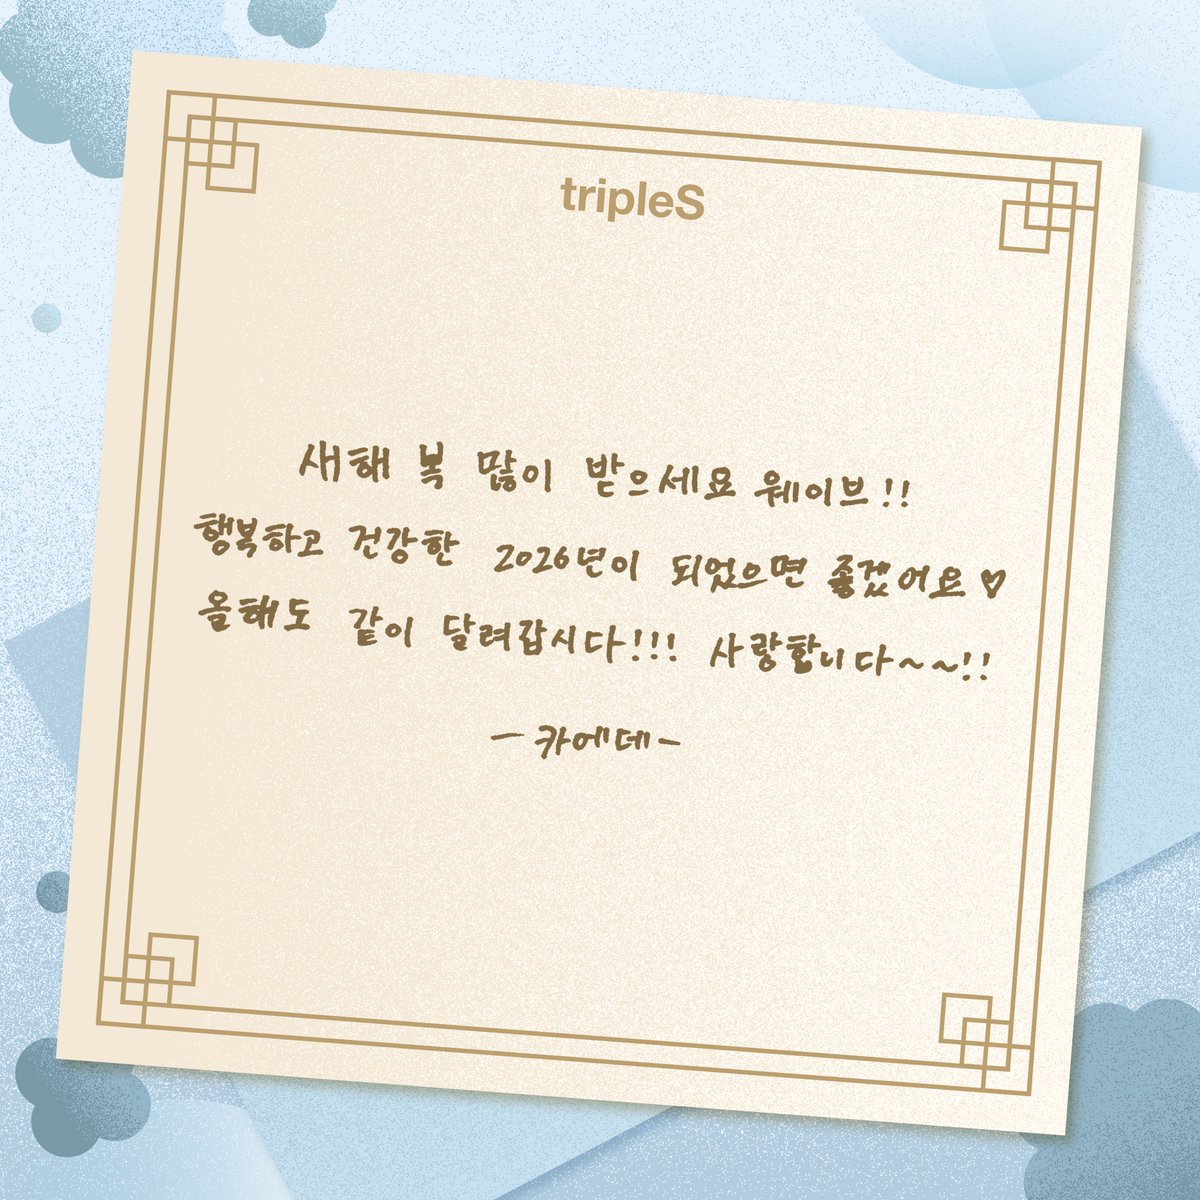 tripleS
새해 복 많이 받으세요 웨이브!!
행복하고 건강한 2026년이 되었으면 좋겠어요♡
올해도 같이 달려갑시다!!! 사랑합니다~~!!
-카에데-